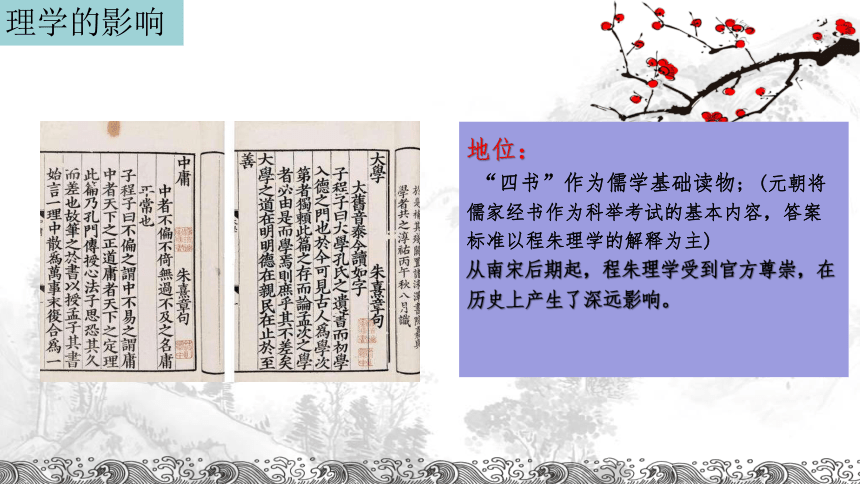 理学的影响
中庸 朱熹章句
中者不偏不倚無過不及之名庸
平常也
子程子曰不偏之謂中不易之謂庸
中者天下之正道庸者天下之定理
此篇乃孔門傳授心法子思恐其久
而差也故筆之於書以授孟子其書
始言一理中散為萬事末復合為一
學者共之淳祐丙午秋八月識
大學 朱熹章句
大舊音泰今讀如字
子程子曰大學孔氏之遺書而初學
入德之門也於今可見古人為學次
第者獨賴此篇之存而論孟次之學
者必由是而學焉則庶乎其不差矣
大學之道在明明德在親民在止於至
善
地位：
“四书”作为儒学基础读物；(元朝将
儒家经书作为科举考试的基本内容，答案
标准以程朱理学的解释为主)
从南宋后期起，程朱理学受到官方尊崇，在
历史上产生了深远影响。